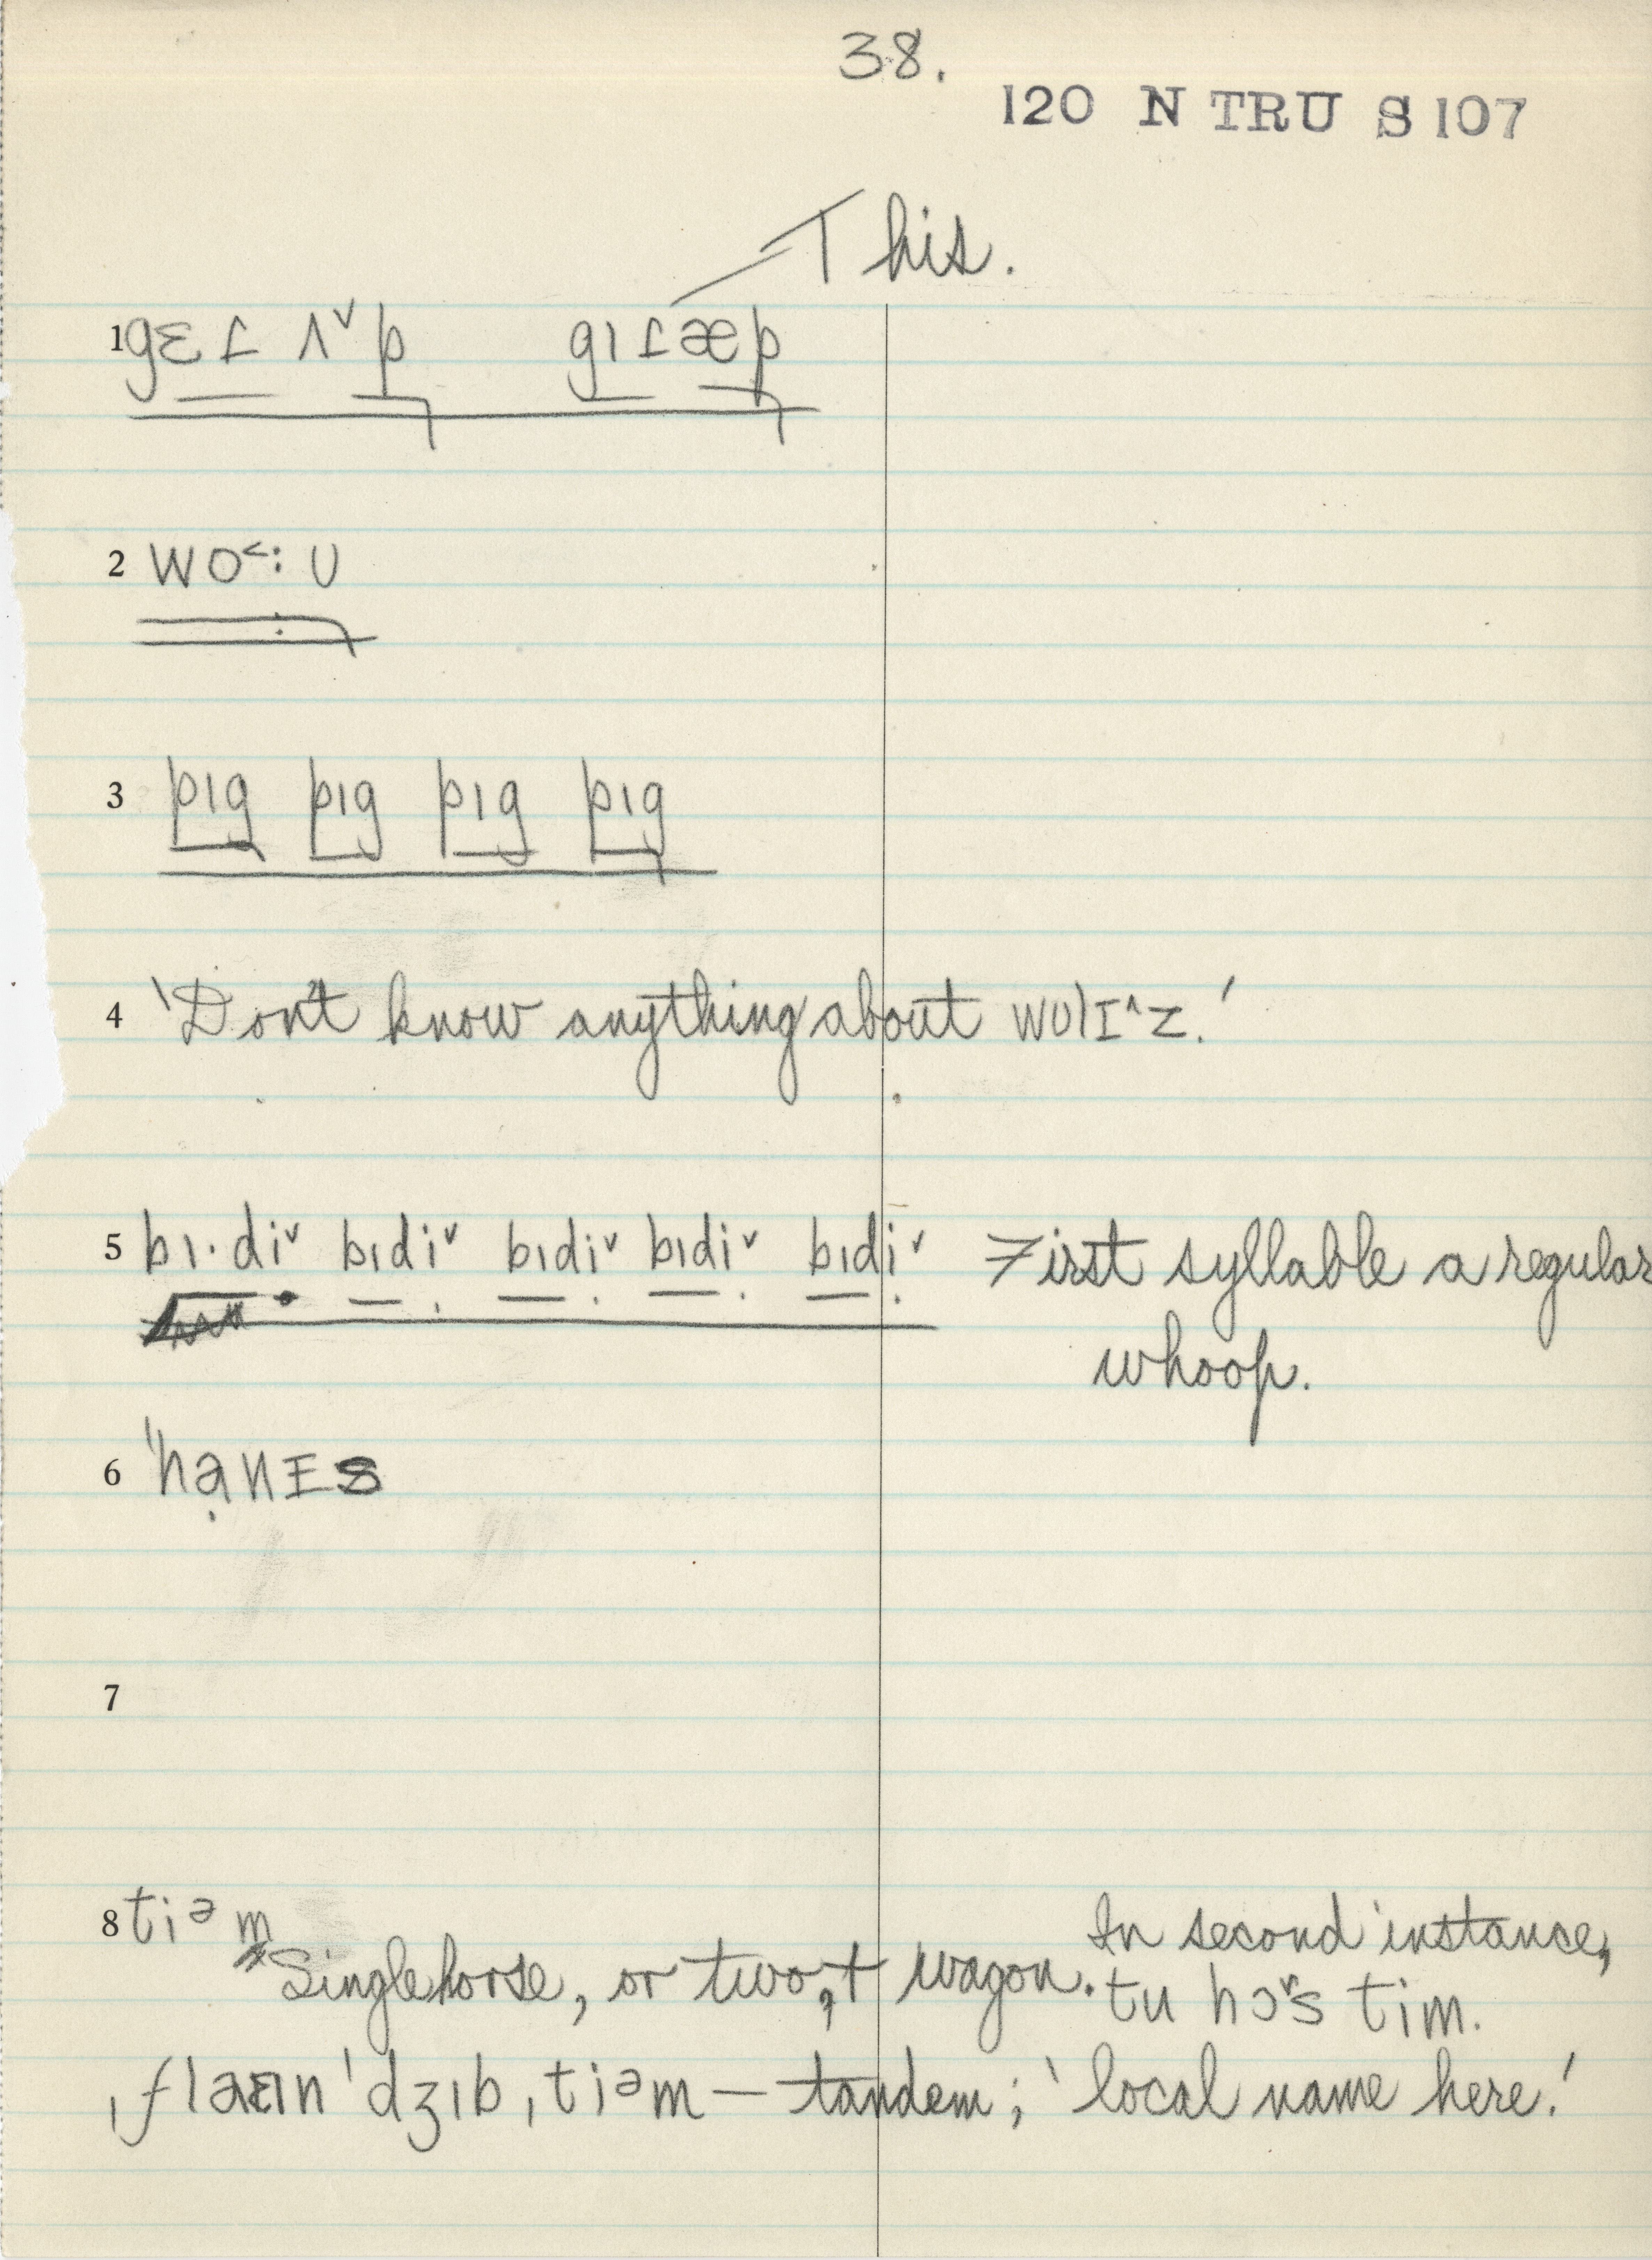 38.
120 N TRU S 107
This.
1 gɛɾ ʌ˅p gɪɾæp
2 wo˂: ʊ
3 pɪg pɪg pɪg pɪg
4 'Don't know anything about wulɪ˄z.'
5 bɪ·di˅ bɪdi˅ bɪdi˅ bɪdi˅ bɪdi˅ First syllable a regular
whoop.
6 'hạnɪs
7
8 tiᵊm
In second instance,
Single horse, or two, + wagon. tu hɔ˅s tim.
ˌflaɪn 'dʒɪb ˌtiᵊm — tandem; 'local name here.'